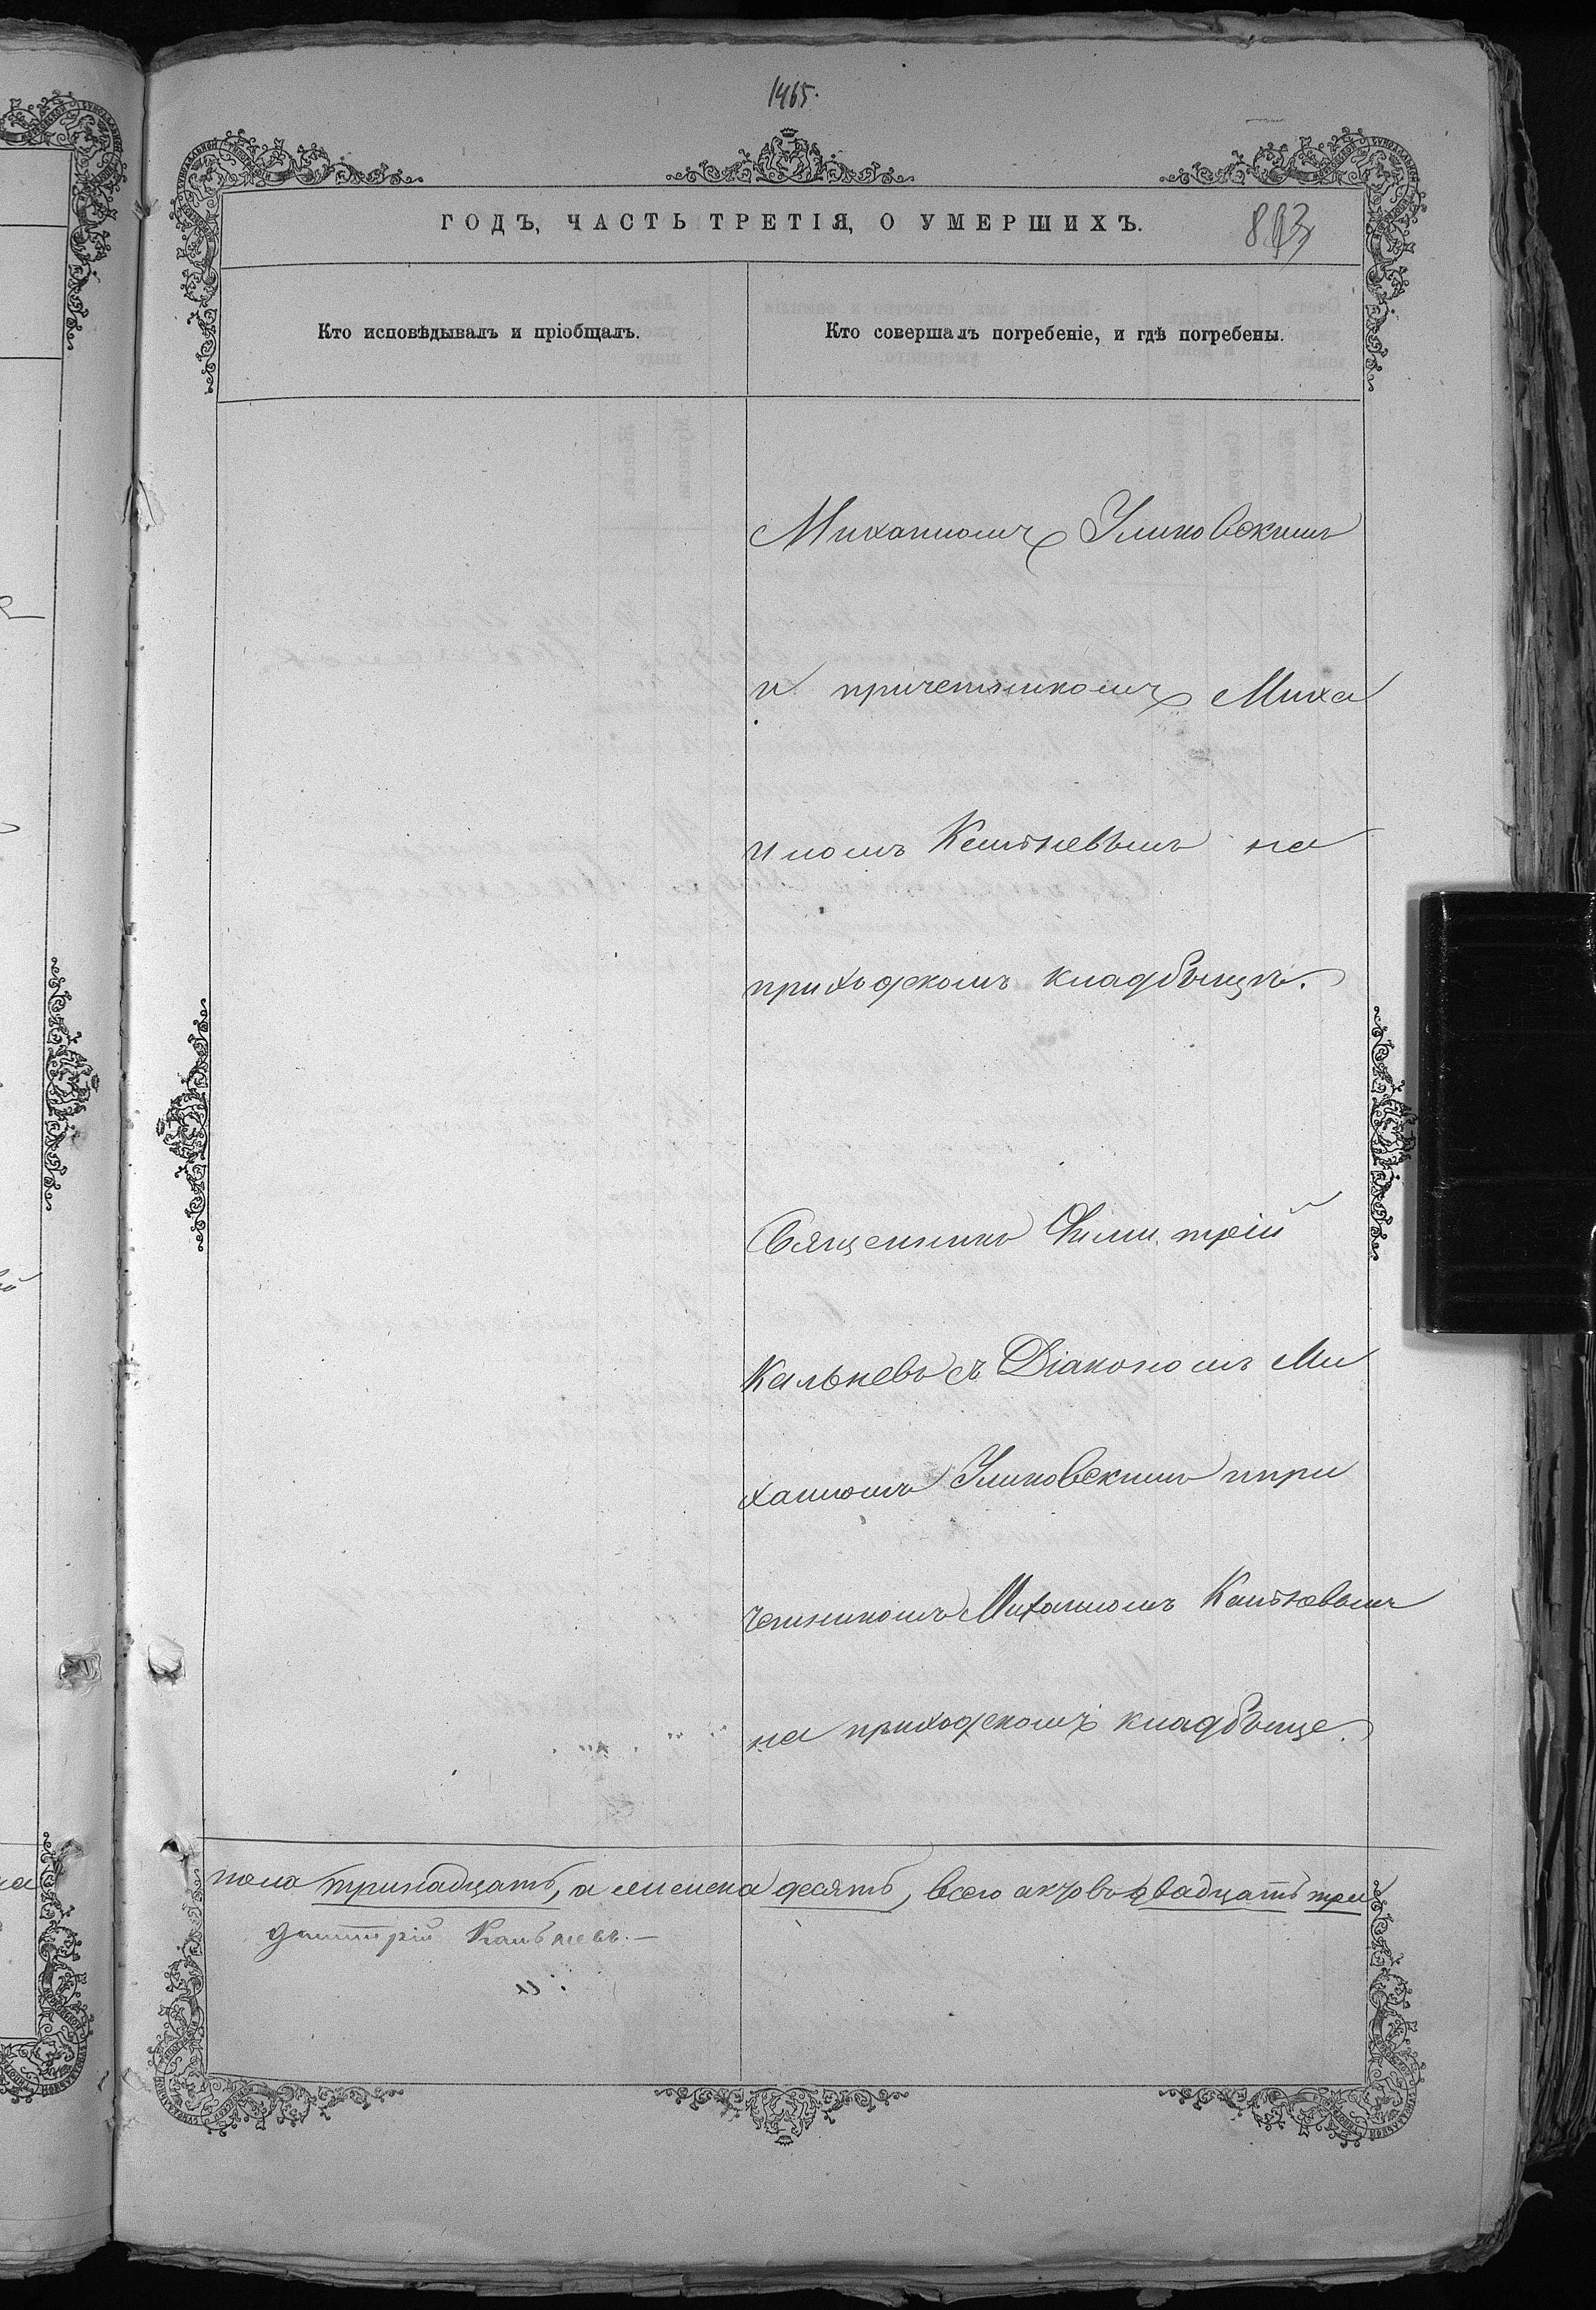 1465.
ГОДЪ, ЧАСТЬ ТРЕТІЯ, О УМЕРШИХЪ.
Кто исповѣдывалъ и пріобщалъ.
Кто совершалъ погребеніе, и гдѣ погребены.
Михаиломъ Улиовскимъ
и причетникомъ Миха
иломъ Кальневымъ на
приходскомъ кладбыщѣ.
Священникъ Димитрій
Кальневъ съ Діакономъ Ми
хаиломъ Улиовскимъ и при
четникомъ Михаиломъ Кальневымъ
на приходскомъ кладбыще.
пола тринадцать, а женска десять, всего актовъ двадцать три
Димитрій Кальневъ.—